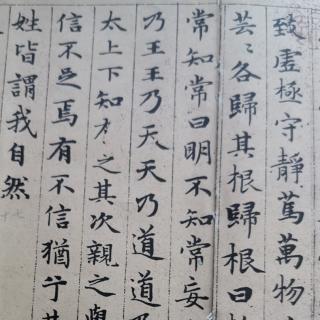 致虛極守靜篤萬物
芸〻各歸其根歸根曰
常知常曰明不知常妄
乃王王乃天天乃道道
太上下知有之其次親之
信不足焉有不信猶兮其
姓皆謂我自然